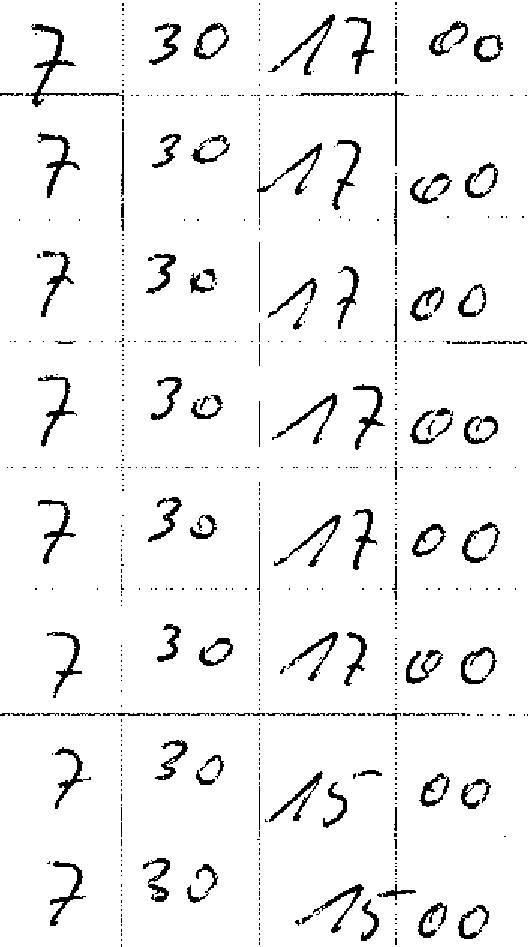 7 30 17 00
7 30 17 00
7 30 17 00
7 30 17 00
7 30 17 00
7 30 17 00
7 30 15 00
7 30 15 00